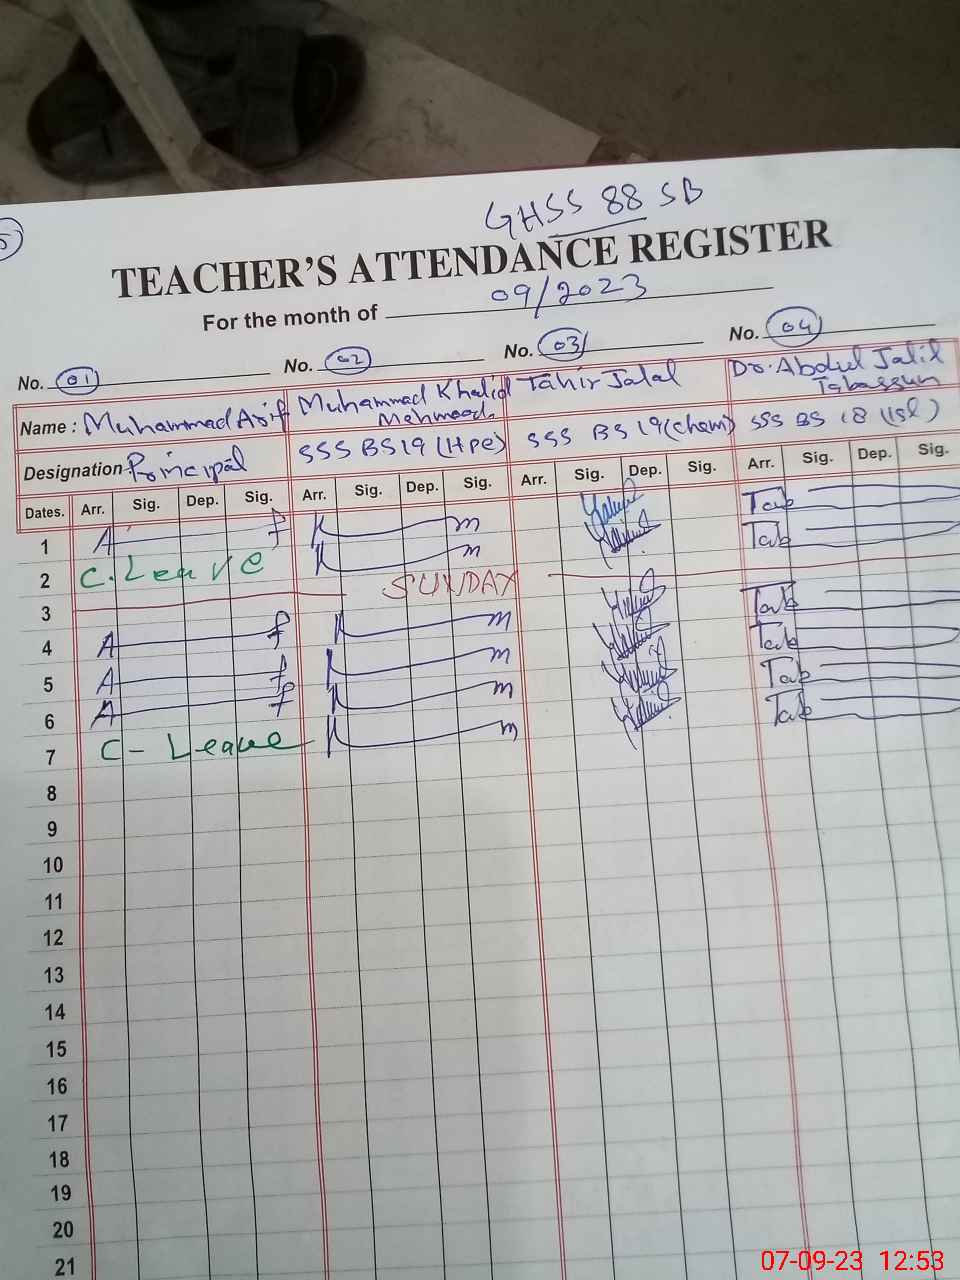 5
GHSS 88 SB
TEACHER'S ATTENDANCE REGISTER
For the month of 09/2023
No. 01 No. 02 No. 03 No. 04
Name : Muhammad Arif Muhammad Khalid Mehmood Tahir Jalal Dr. Abdul Jalil Tabassum
Designation Principal SSS BS19 (Hpe) SSS BS 19 (Chem) SSS BS 18 (Isl)
Dates. Arr. Sig. Dep. Sig. Arr. Sig. Dep. Sig. Arr. Sig. Dep. Sig. Arr. Sig. Dep. Sig.
1 A f K m Tab
2 C. Leave K m Tab
3 SUNDAY
4 A f K m Tab
5 A f K m Tab
6 A f K m Tab
7 C - Leave K m Tab
8
9
10
11
12
13
14
15
16
17
18
19
20
21
07-09-23 12:53